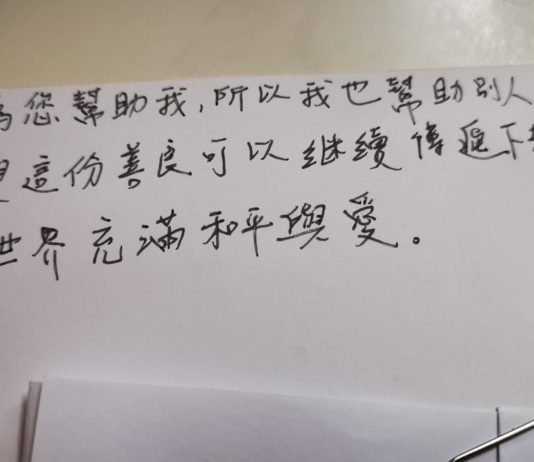 為您幫助我,所以我也幫助別人
這份善良可以继續傳遞下
世界充滿和平與愛。